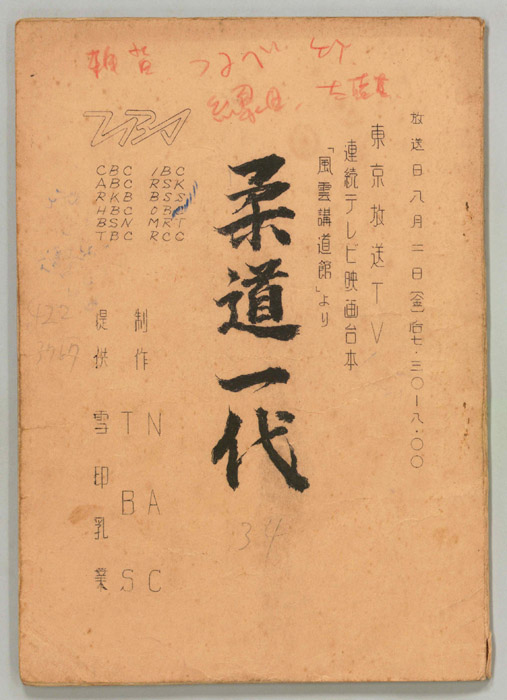 放送日八月二日(金)后七・三〇ー八・〇〇
東京放送TV
連続テレビ映画台本
「風雲講道館」より
柔道一代
34
CBC IBC
ABC RSK
RKB BSS
HBC OBS
BSN MRT
TBC RCC
制作 NAC
TBS
提供 雪印乳業
422